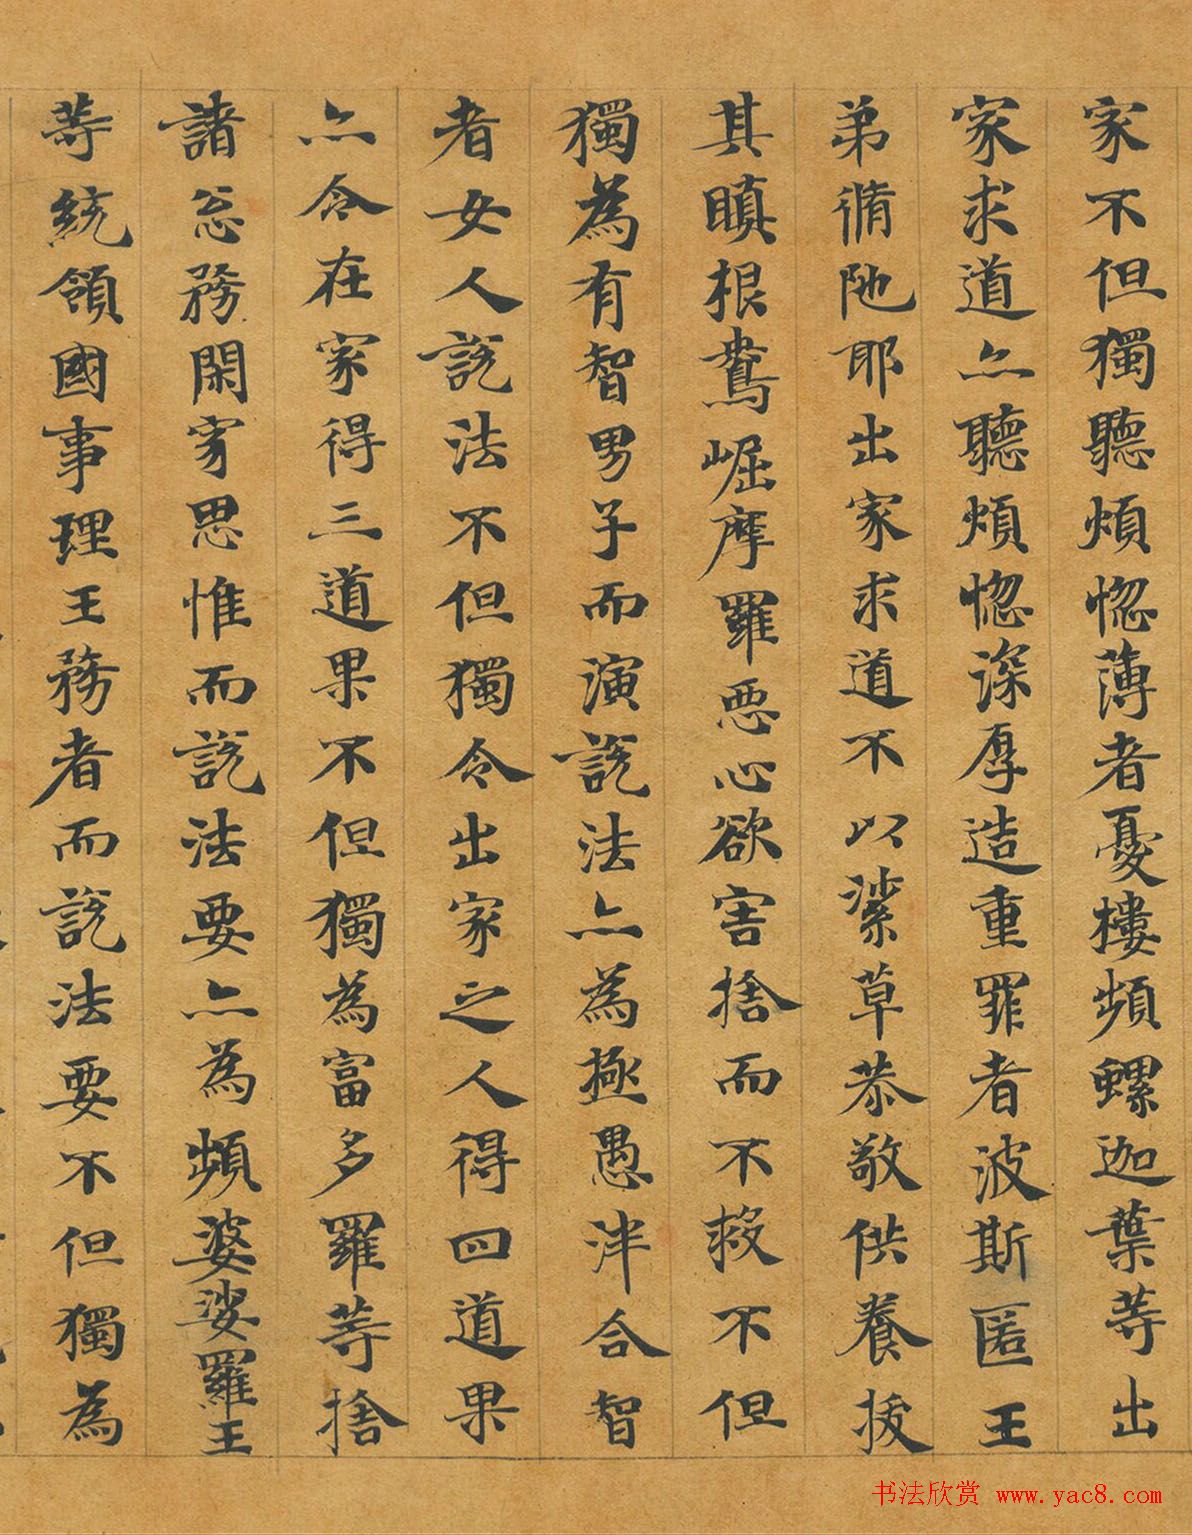 家不但獨聽煩惚薄者憂樓頻螺迦葉䓁出
家求道亦聽煩惚深厚造重罪者波斯匿王
弟脩陁耶出家求道不以㴆草恭敬供養拔
其瞋根鴦崛摩羅惡心欲害捨而不救不但
獨為有智男子而演說法亦為極愚泮合智
者女人說法不但獨令出家之人得四道果
亦令在家得三道果不但獨為富多羅䓁捨
諸怱務閑家思惟而說法要亦為頻婆娑羅王
䓁統領國事理王務者而說法要不但獨為
书法欣赏 www.yac8.com